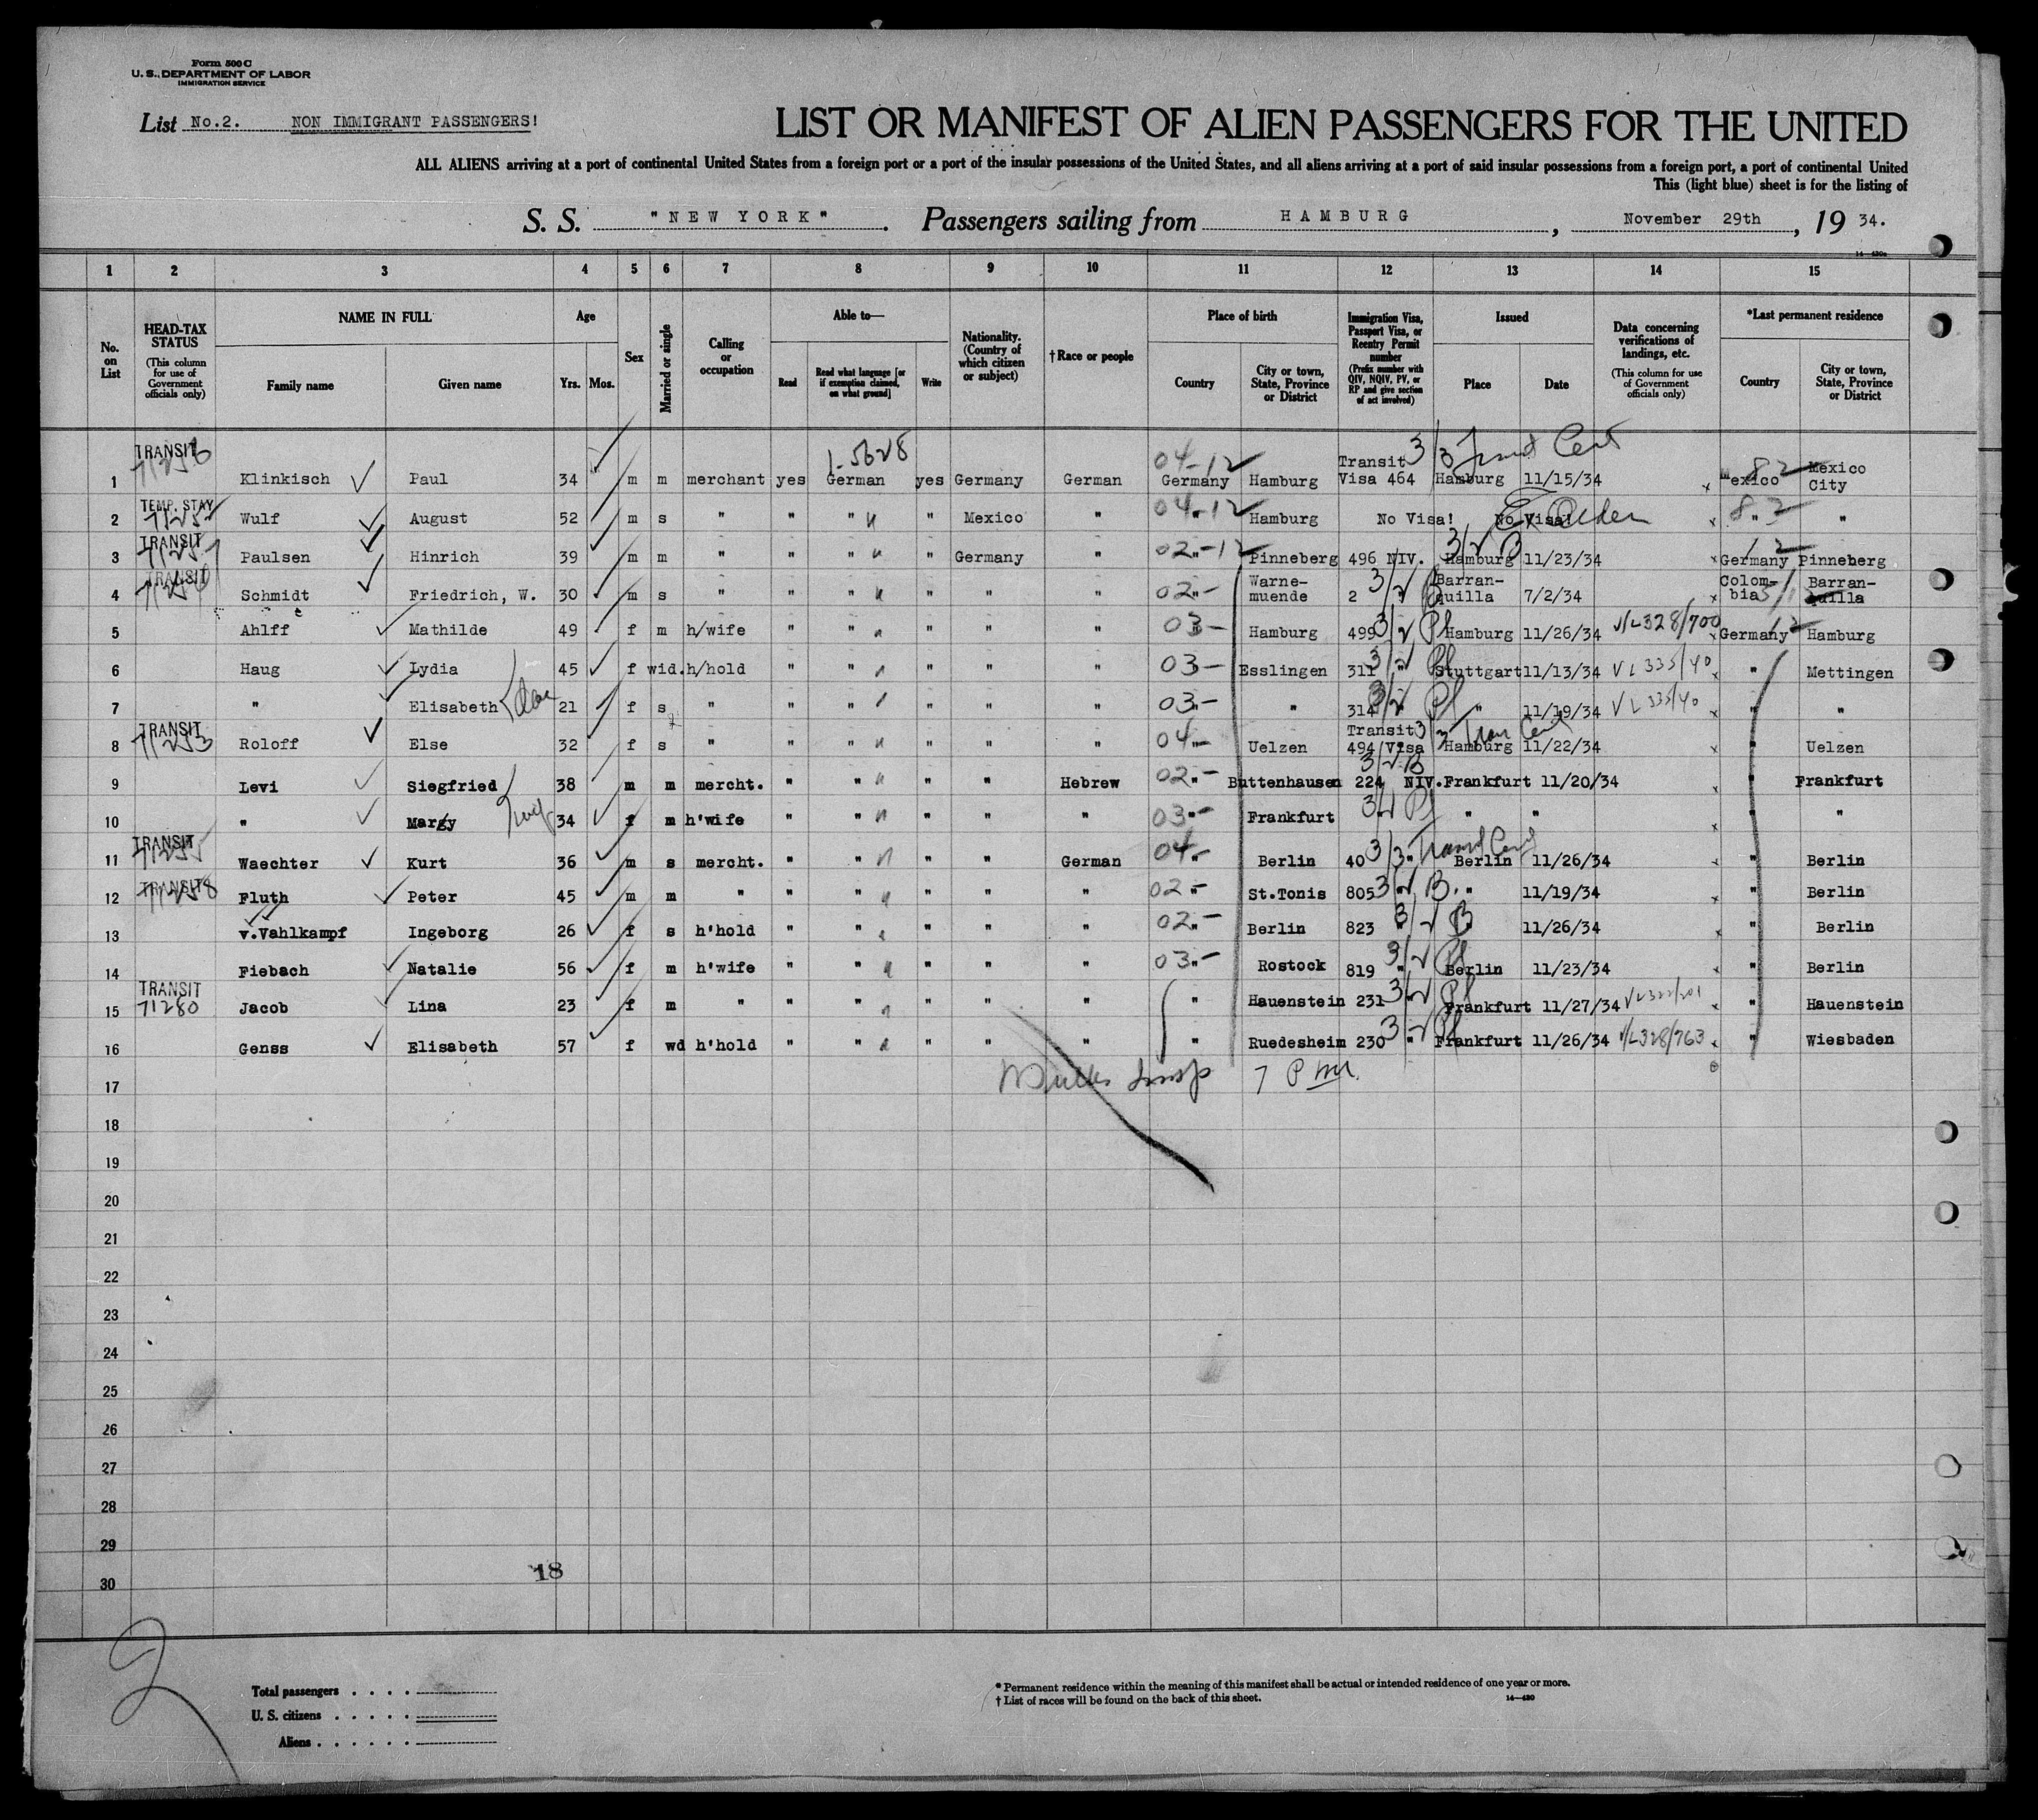 Form 500 C
U. S. DEPARTMENT OF LABOR
IMMIGRATION SERVICE
List No.2. NON IMMIGRANT PASSENGERS!
LIST OR MANIFEST OF ALIEN PASSENGERS FOR THE UNITED
ALL ALIENS arriving at a port of continental United States from a foreign port or a port of the insular possessions of the United States, and all aliens arriving at a port of said insular possessions from a foreign port, a port of continental United
This (light blue) sheet is for the listing of
S. S. "NEW YORK". Passengers sailing from HAMBURG, November 29th, 19 34.
1 2 3 4 5 6 7 8 9 10 11 12 13 14 15
No. on List
HEAD-TAX STATUS (This column for use of Government officials only)
NAME IN FULL Family name Given name
Age Yrs. Mos.
Sex
Married or single
Calling or occupation
Able to— Read Read what language [or if exemption claimed, on what ground] Write
Nationality. (Country of which citizen or subject)
†Race or people
Place of birth Country City or town, State, Province or District
Immigration Visa, Passport Visa, or Reentry Permit number (Prefix number with QIV, NQIV, PV, or RP and give section of act involved)
Issued Place Date
Data concerning verifications of landings, etc. (This column for use of Government officials only)
*Last permanent residence Country City or town, State, Province or District
TRANSIT 1-5628 04-12 3/3
1 Klinkisch Paul 34 m m merchant yes German yes Germany German Germany Hamburg Transit Visa 464 Hamburg 11/15/34 Mexico 82 Mexico City
TEMP. STAY
2 Wulf August 52 m s " " " " Mexico " 04-12 Hamburg No Visa! No Visa! " "
TRANSIT
3 Paulsen Hinrich 39 m m " " " " Germany " 02-12 Pinneberg 496 NIV. Hamburg 11/23/34 Germany Pinneberg
TRANSIT
4 Schmidt Friedrich, W. 30 m s " " " " " " 02- Warne-muende 2 " Barran-quilla 7/2/34 Colom-bia Barran-quilla
5 Ahlff Mathilde 49 f m h/wife " " " " " 03- Hamburg 499 " Hamburg 11/26/34 V L328/700 Germany Hamburg
6 Haug Lydia 45 f wid. h/hold " " " " " 03- Esslingen 311 " Stuttgart 11/13/34 V L 335/40 " Mettingen
7 " Elisabeth 21 f s " " " " " " 03- " 314 " " 11/19/34 V L 335/40 " "
TRANSIT
8 Roloff Else 32 f s " " " " " " 04- Uelzen Transit 494 Visa Hamburg 11/22/34 " Uelzen
9 Levi Siegfried 38 m m mercht. " " " " Hebrew 02- Buttenhausen 224 NIV. Frankfurt 11/20/34 " Frankfurt
10 " Margy 34 f m h'wife " " " " " 03- Frankfurt " " " " "
TRANSIT
11 Waechter Kurt 36 m s mercht. " " " " German 04- Berlin 40 " Berlin 11/26/34 " Berlin
TRANSIT
12 Fluth Peter 45 m m " " " " " " 02- St.Tonis 805 " " 11/19/34 " Berlin
13 v.Vahlkampf Ingeborg 26 f s h'hold " " " " " 02- Berlin 823 " " 11/26/34 " Berlin
14 Fiebach Natalie 56 f m h'wife " " " " " 03- Rostock 819 " Berlin 11/23/34 " Berlin
TRANSIT
15 71280 Jacob Lina 23 f m " " " " " " " Hauenstein 231 " Frankfurt 11/27/34 " Hauenstein
16 Genss Elisabeth 57 f wd h'hold " " " " " " Ruedesheim 230 " Frankfurt 11/26/34 V L328/763 " Wiesbaden
17 7 P M.
18
19
20
21
22
23
24
25
26
27
28
29
18
30
2
Total passengers . . . .
U. S. citizens . . . . .
Aliens . . . . . .
* Permanent residence within the meaning of this manifest shall be actual or intended residence of one year or more.
† List of races will be found on the back of this sheet.
14—430